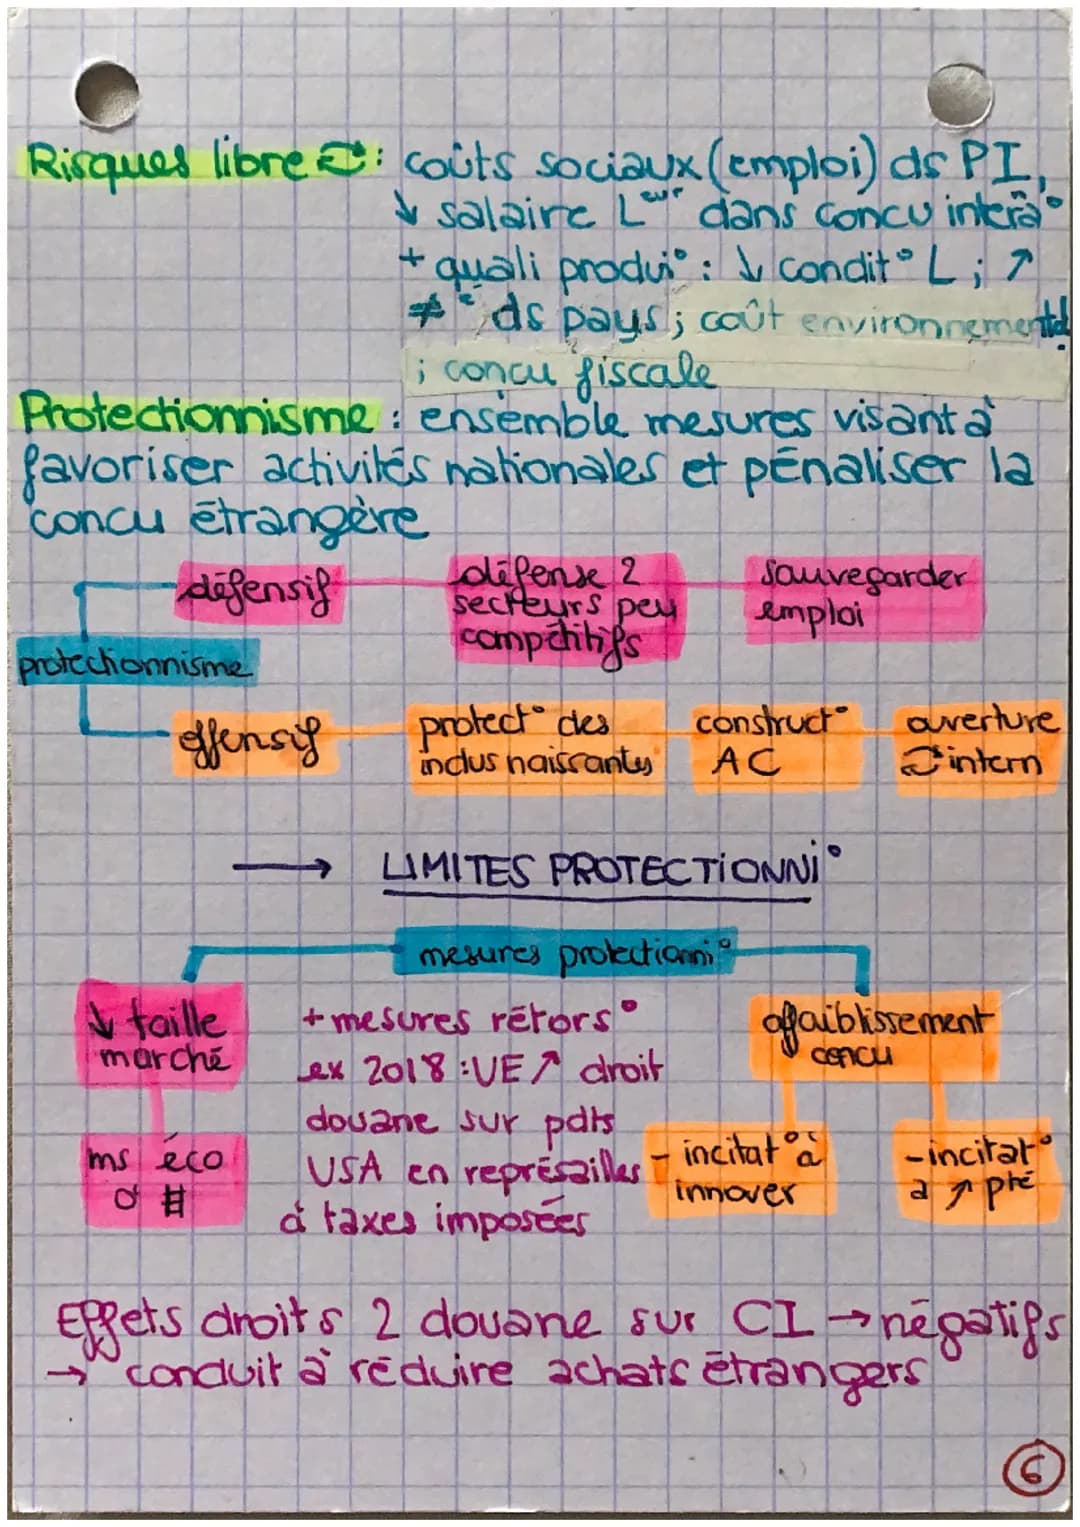 Risques libre ⇄ : coûts sociaux (emploi) ds PI,
↓ salaire L^eur dans concu interna°
+ quali produi° : ↓ condit° L ; ↗
≠ ds pays ; coût environnemental
; concu fiscale
Protectionnisme : ensemble mesures visant à
favoriser activités nationales et pénaliser la
concu étrangère
défensif
défense 2
secteurs peu
compétitifs
sauvegarder
emploi
protectionnisme
offensif
protect° des
indus naissantes
construct°
AC
ouverture
⇄ intern
→ LIMITES PROTECTIONNI°
mesures protectionni°
↓ taille
marché
ms éco
d' #
+ mesures rétors°
ex 2018 : UE ↗ droit
douane sur pdts
USA en représailles
à taxes imposées
affaiblissement
concu
- incitat° à
innover
- incitat°
à ↗ pté
Effets droits 2 douane sur CI → négatifs
→ conduit à réduire achats étrangers
6